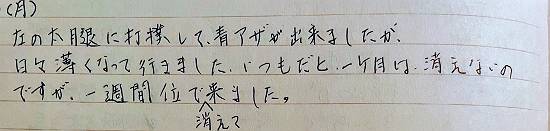 (月)
左の太月腿に打撲して、青アザが出来ましたが、
日々薄くなって行きました。いつもだと、一ケ月は、消えないの
ですが、一週間位で来ました。
消えて